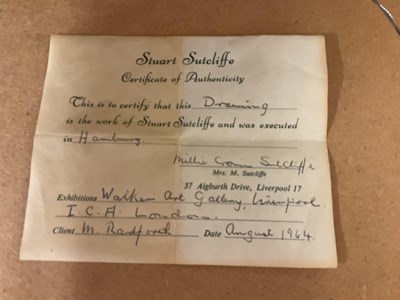 Stuart Sutcliffe
Certificate of Authenticity
This is to certify that this Drawing
is the work of Stuart Sutcliffe and was executed
in Hamburg.
Millie Cronin Sutcliffe
Mrs. M. Sutcliffe
37 Aigburth Drive, Liverpool 17
Exhibitions Walker Art Gallery, Liverpool.
I. C. A. London.
Client M. Radforth Date August 1964.